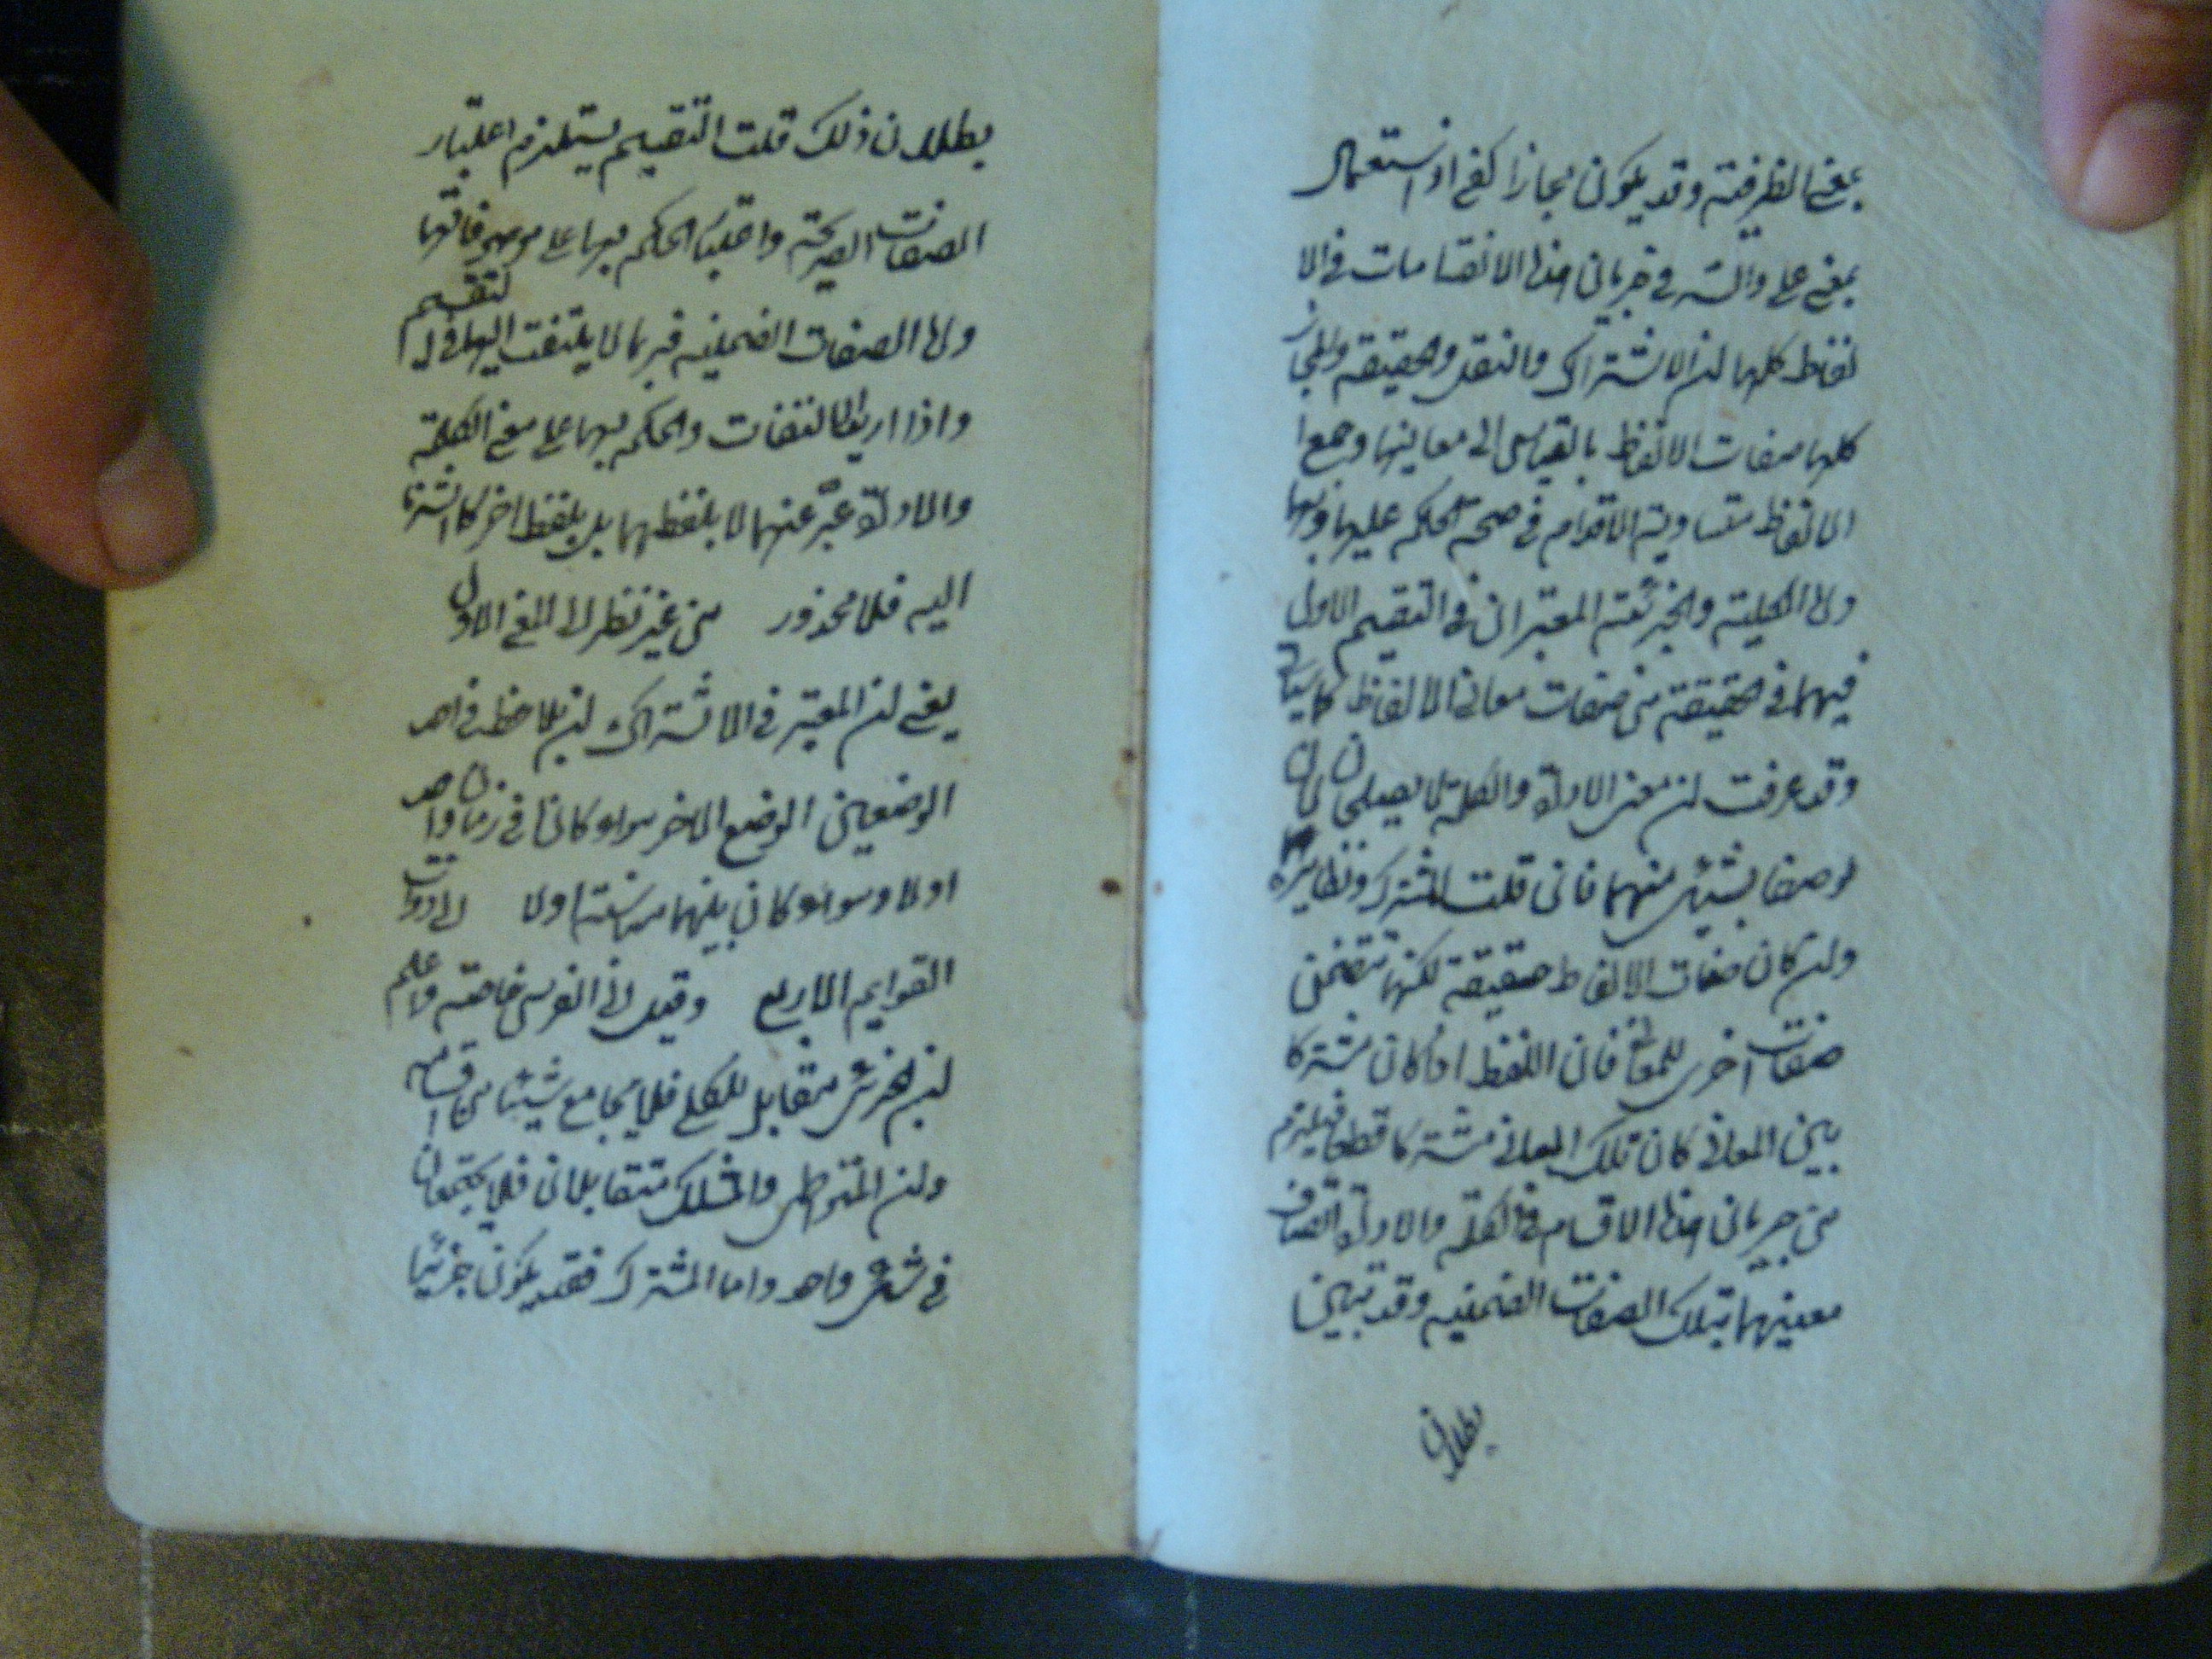 بمعنى الظرفية وقد يكون مجازا كفى اذ استعمال
بمعنى على والسر في جريان هذه الانقسامات في الا
لفاظ كلها ان الاشتراك والنقل والحقيقة والمجاز
كلها صفات الالفاظ بالقياس الى معانيها وجميع
الالفاظ متساوية الاقدام في صحة الحكم عليها وبها
واما الكلية والجزئية المعتبران في التقسيم الاول
فهما في الحقيقة من صفات معاني الالفاظ كما سيأتي
وقد عرفت ان معنى الاداة والكلمة لا يصلحان لان
يوصفا بشيء منهما فان قلت المشترك ونظايره
وان كان صفات الالفاظ حقيقة لكنها تتضمن
صفات اخرى للمعاني فان اللفظ اذا كان مشتركا
بين المعاني كان تلك المعاني مشتركا قطعا فيلزم
من جريان هذه الاقسام في الكلمة والاداة اتصاف
معنيهما بتلك الصفات الضمنية وقد تبين
بطلان
بطلان ذلك قلت التقسيم يستلزم اعتبار
الصفات الصريحة واعتبار الحكم بها على موصوفاتها
واما الصفات الضمنية فربما لا يلتفت اليها في التقسيم
واذا اريد التفات والحكم بها على معنى الكلمة
والاداة عبر عنهما لا بلفظهما بل بلفظ اخر كما اشرنا
اليه فلا محذور من غير نظر الى المعنى الاول
يعنى ان المعتبر في الاشتراك ان يلاحظ في احد
الوضعين الوضع الاخر سواء كانا في زمان واحد
اولا وسواء كان بينهما مناسبة اولا لذوات
القوايم الاربع وقيل الى الفرس خاصة واعلم
ان الجزئي مقابل للكلي فلا يجامع شيئا من اقسامه
وان المتواطي والمشكك متقابلان فلا يجتمعان
في شيء واحد واما المشترك فقد يكون جزئيا